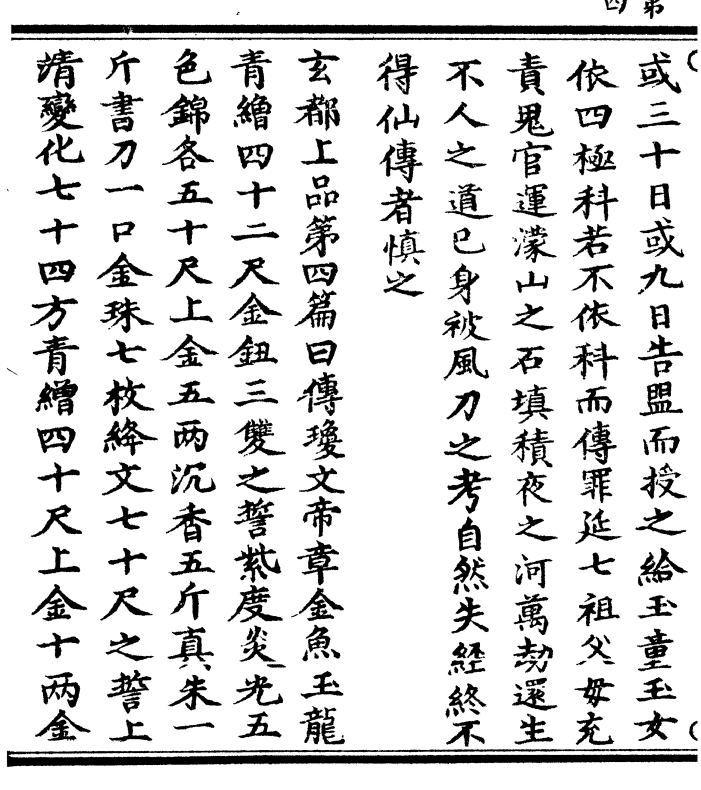 第
四
或三十日或九日告盟而授之給玉童玉女
依四極科若不依科而傳罪延七祖父母充
責鬼官運濛山之石填積夜之河萬劫還生
不人之道已身被風刀之考自然失經終不
得仙傳者慎之
玄都上品第四篇曰傳瓊文帝章金魚玉龍
青繒四十二尺金鈕三雙之誓紫度炎光五
色錦各五十尺上金五两沉香五斤真朱一
斤書刀一口金珠七枚絳文七十尺之誓上
清變化七十四方青繒四十尺上金十两金